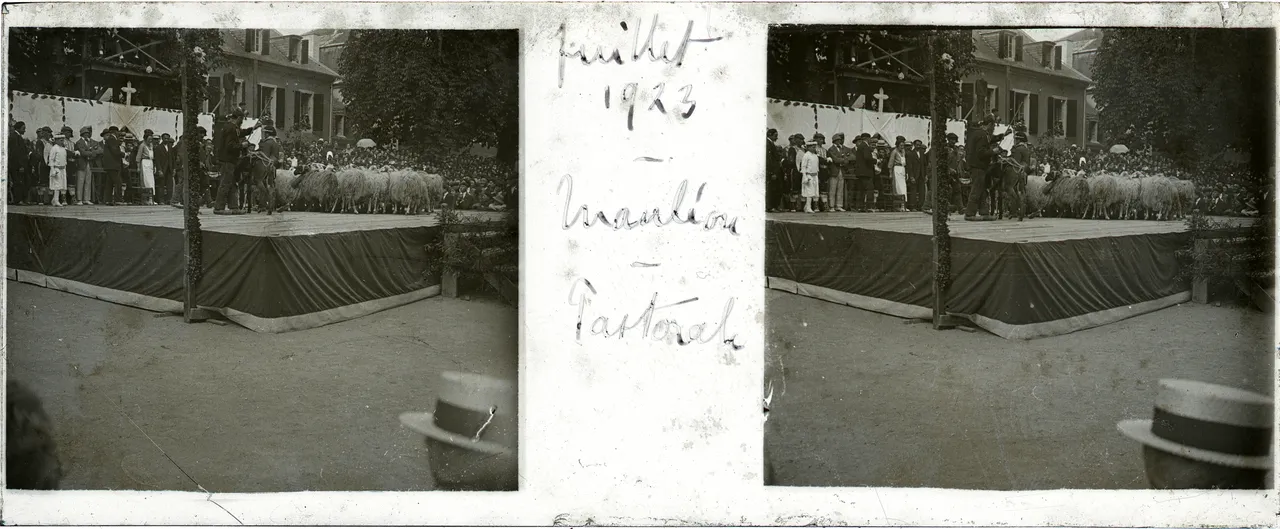 Juillet
1923
-
Mauléon
-
Pastorale